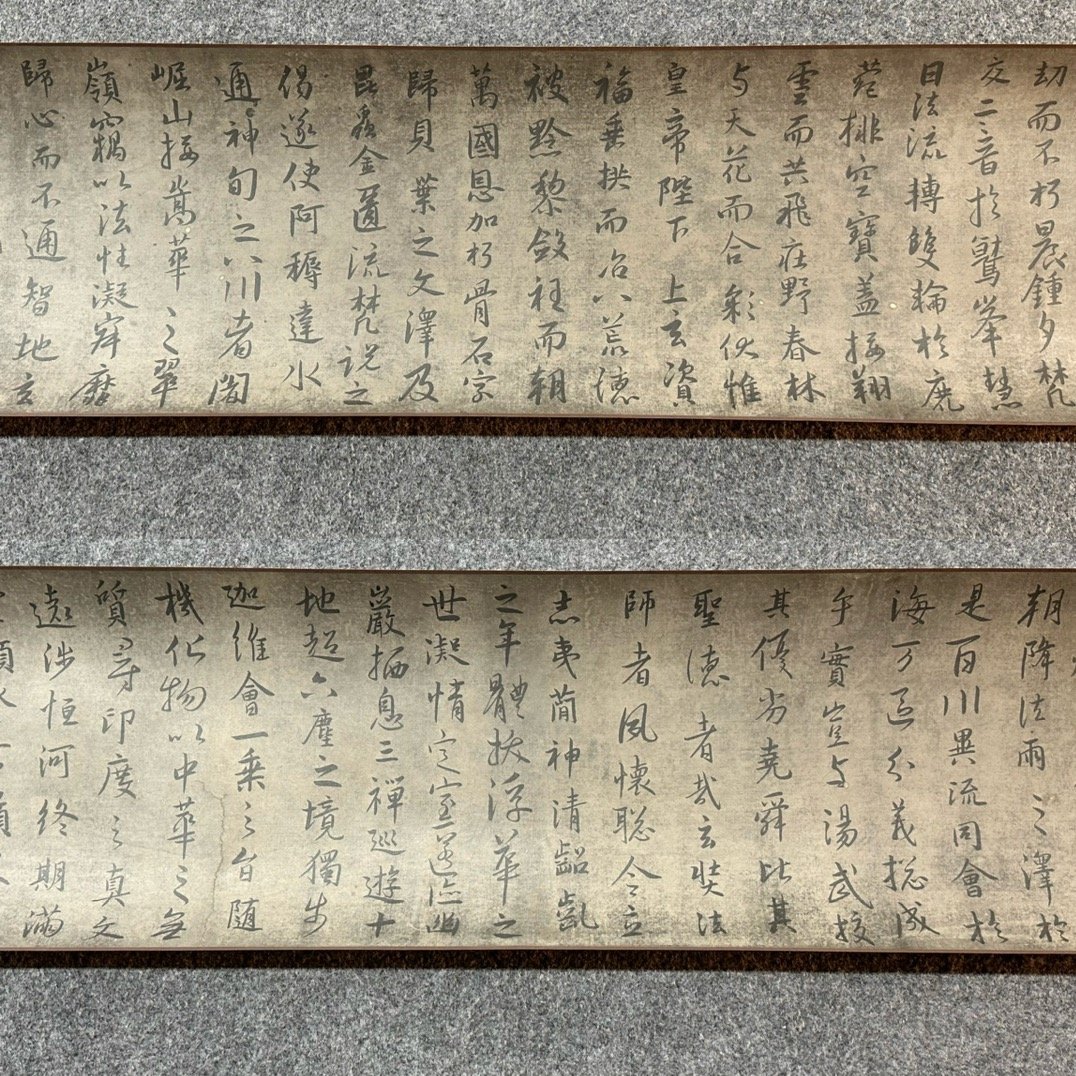 劫而不朽晨鍾夕梵
交二音於鷲峯慧
日法流轉雙輪於鹿
菀排空寶蓋接翔
雲而共飛莊野春林
与天花而合彩伏惟
皇帝陛下上玄資
福垂拱而治八荒德
被黔黎斂衽而朝
萬國恩加朽骨石室
歸貝葉之文澤及
昆蟲金匱流梵説之
偈遂使阿耨達水
通神甸之八川耆闍
崛山接嵩華之翠
嶺竊以法性凝寂靡
歸心而不通智地玄
朝降法雨之澤於
是百川異流同會於
海万區分義揔成
乎實豈与湯武校
其優劣堯舜比其
聖德者哉玄奘法
師者夙懷聡令立
志夷簡神清齠齔
之年體拔浮華之
世凝情定室匿迹幽
巖栖息三禪巡遊十
地超六塵之境獨步
迦維會一乘之旨随
機化物以中華之无
質尋印度之真文
遠涉恒河終期滿